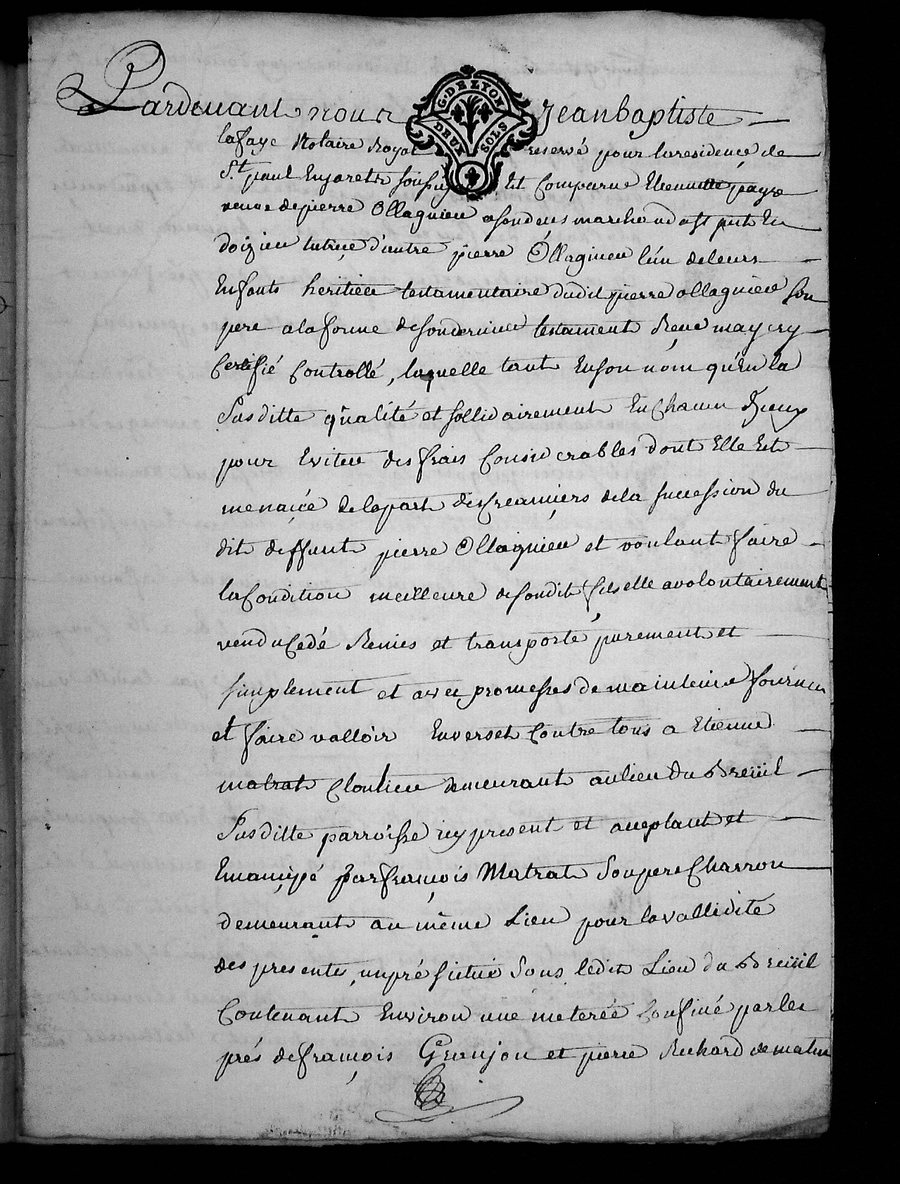 Pardevant nous Jean baptiste
G. DE LYON
DEUX SOLS
lafaye Notaire Royal reservé pour la residence de
St paul Enjarets soussigné Est Comparue Etiennette paya
veuve de pierre Ollagnieu
doizieu tutrice d'autre pierre Ollagnieu l'un de leurs
Enfants heritier testamentaire dudit pierre ollagnieu son
pere a la forme de son dernier testament Reçu may cry
Certifié Controllé, laquelle tant En son nom qu'En la
susditte qualité et sollidairement
pour Eviter des frais Considerables dont Elle Est
menacée de la part des Creanciers de la succession du
dit deffunt pierre Ollagnieu et voulant faire
la Condition meilleure de sondit fils elle a volontairement
vendu Cedé Remis et transporté purement et
simplement et avec promesses de maintenir fournir
et faire valloir Envers et Contre tous a Etienne
matrat Cloutier demeurant au lieu du Breüil
susditte parroisse icy present et acceptant et
Emancipé par françois Matrat son pere Charron
demeurant au même Lieu pour la vallidité
des presentes, un pré situé sous ledit Lieu du Breüil
Contenant Environ une meterée Confiné par les
prés de françois Granjon et pierre Richard de matin